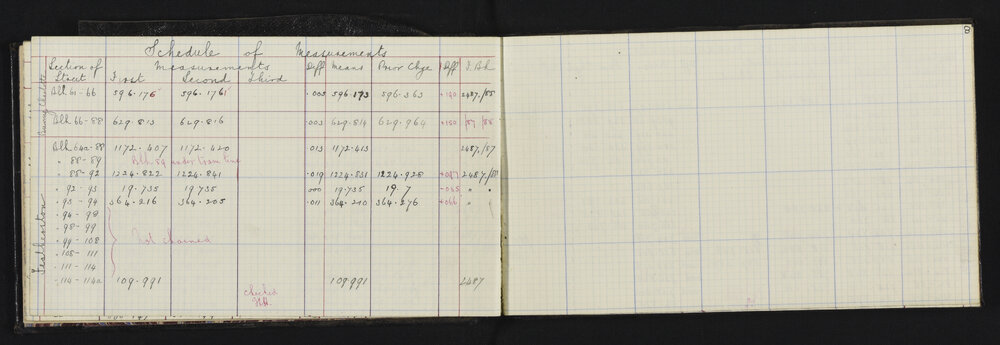 Schedule of Measurements
Section of Street Measurements Diff Means Prior Chge Diff F. Bk
First Second Third
Blk 61-66 596.176 596.1761 .003 596.173 596.363 +.190 2487/88
Blk 66-88 629.813 629.816 .003 629.814 629.964 +.150 /87 /88
Blk 64a-88 1172.407 1172.420 .013 1172.413 2487/87
" 88-89 Blk 89 under tram line
" 88-92 1224.822 1224.841 .019 1224.831 1224.928 +.097 2487/88
" 92-93 19.735 19.735 .000 19.735 19.7 -.035 " "
" 93-94 364.216 364.205 .011 364.210 364.276 +.066 "
" 94-98
" 98-99
" 99-108 Not chained
" 108-111
" 111-114
" 114-114a 109.991 109.991 2487
checked
Featherston
8